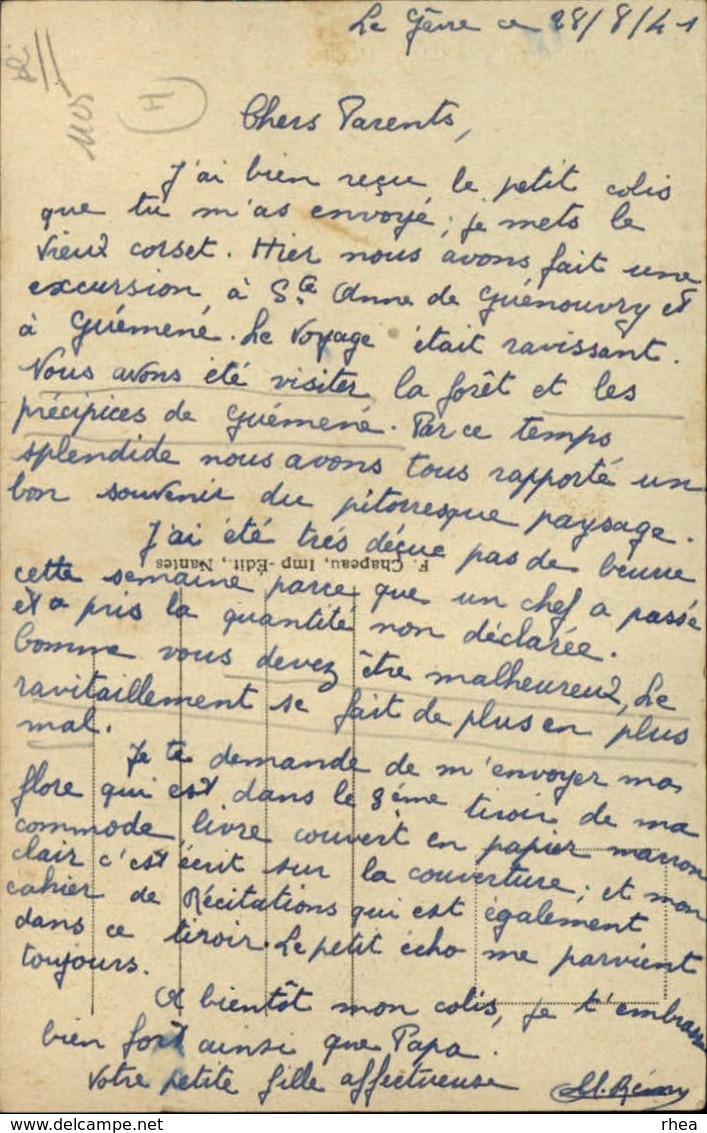 Le Gâvre ce 28/8/41
Chers Parents,
J'ai bien reçue le petit colis
que tu m'as envoyé; je mets le
vieux corset. Hier nous avons fait une
excursion à Ste Anne de Guénouvry et
à Guémené. Le voyage était ravissant.
Nous avons été visiter la forêt et les
précipices de Guémené. Par ce temps
splendide nous avons tous rapporté un
bon souvenir du pitoresque paysage.
J'ai été trés déçue pas de beurre
F. Chapeau, Imp-Édit, Nantes
cette semaine parce que un chef a passé
et a pris la quantité non déclarée.
Comme vous devez être malheureux, Le
ravitaillement se fait de plus en plus
mal.
Je te demande de m'envoyer ma
flore qui est dans le 3ème tiroir de ma
commode, livre couvert en papier marron
clair c'est écrit sur la couverture; et mon
cahier de Récitations qui est également
dans ce tiroir. Le petit écho me parvient
toujours.
A bientôt mon colis, je t'embrasse
bien fort ainsi que Papa.
Votre petite fille affectueuse
M. Rémy
rhea